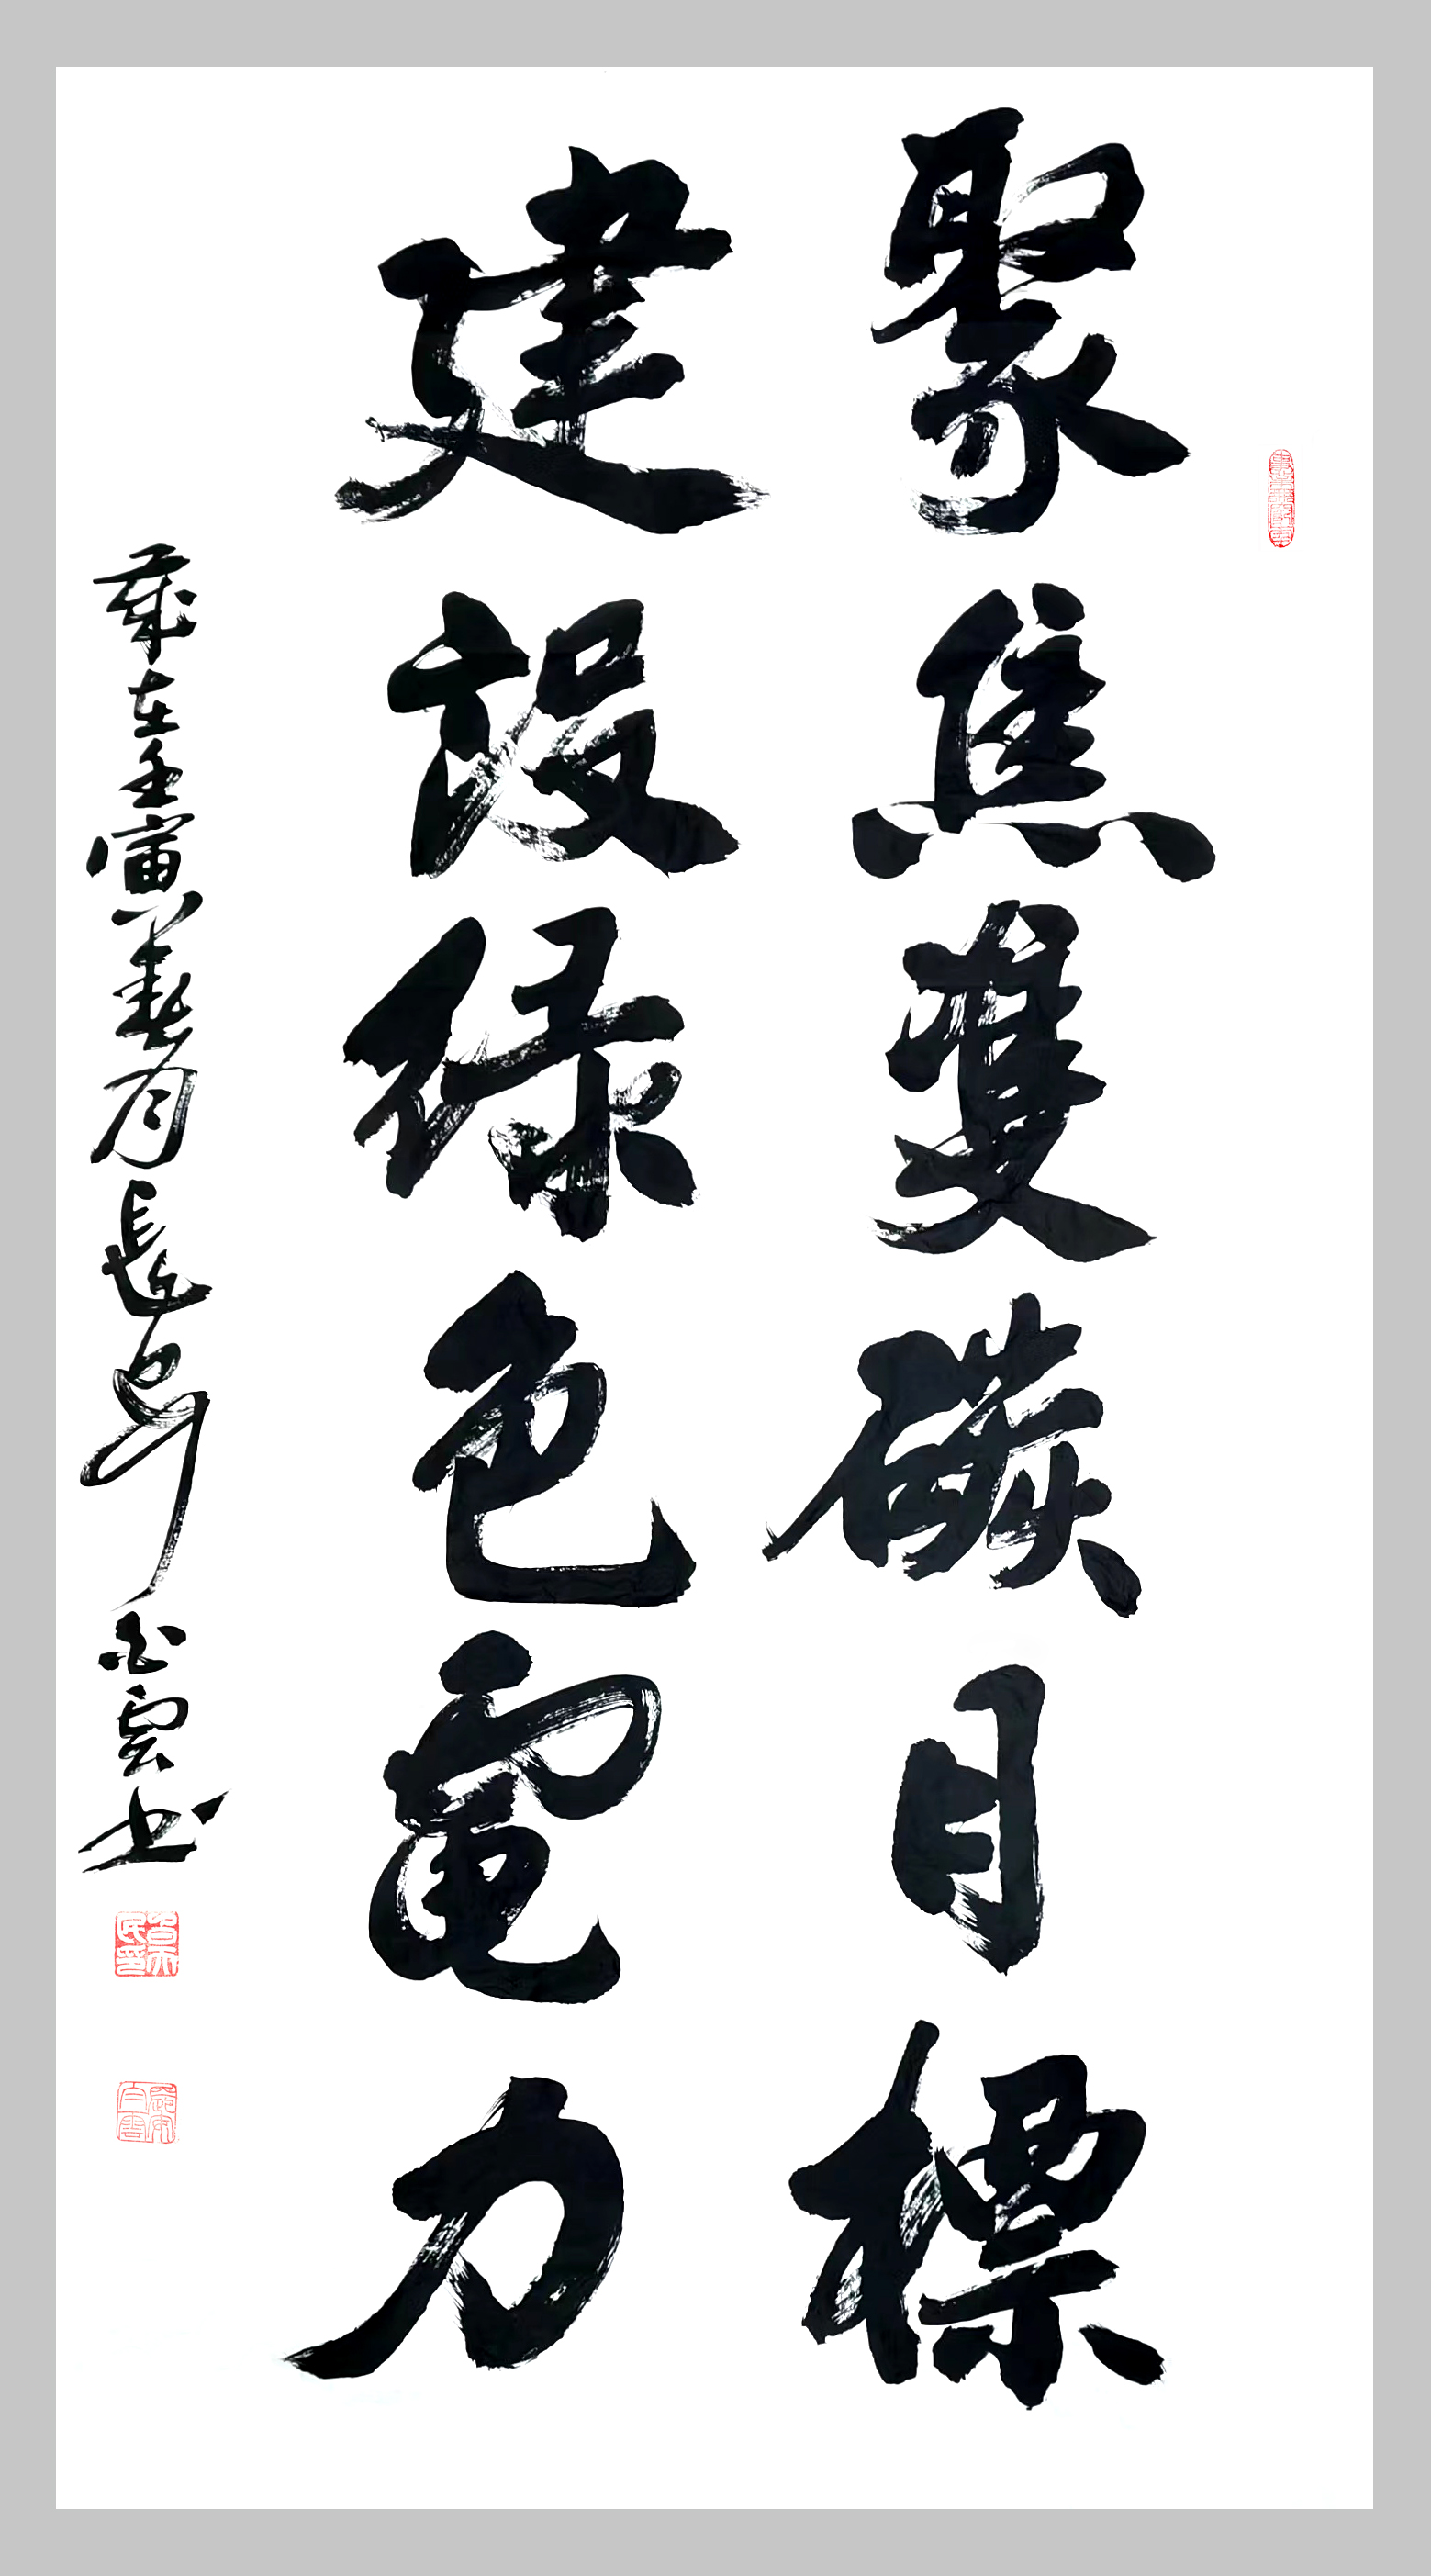 聚焦雙碳目標
建設綠色電力
歲在壬寅春月長安白雲書